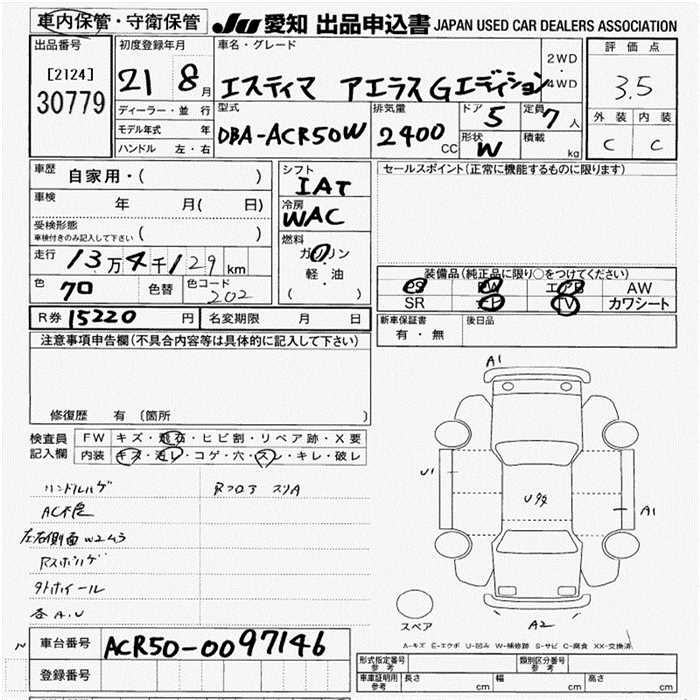 車内保管・守衛保管 JU 愛知 出品申込書 JAPAN USED CAR DEALERS ASSOCIATION
出品番号 初度登録年月 車名・グレード 評価点
[2124] 21 8月 エスティマ アエラスGエディション 2WD・4WD 3.5
30779
ディーラー・並行 型式 排気量 ドア 定員 外装 内装
モデル年式 年 DBA-ACR50W 2400CC 5 7人 C C
ハンドル 左・右 形状 W 積載 kg
車歴 自家用・( ) シフト IAT セールスポイント(正常に機能するものに限ります)
車検 年 月( 日) 冷房 WAC
受検形態
車検付きのみ記入して下さい ( )
燃料
走行 13万4千129km ガソリン
軽・油
( )
装備品(純正品に限り○をつけてください)
色 クロ 色替 色コード 202 PS PW エアB AW
SR ナビ TV カワシート
R券 15220円 名変期限 月 日 新車保証書 有・無 後日品
注意事項申告欄(不具合内容等は具体的に記入して下さい)
修復歴 有 (箇所 )
検査員記入欄 FW キズ・飛石・ヒビ割・リペア跡・X要
内装 キズ・汚レ・コゲ・穴・スレ・キレ・破レ
ハンドルハゲ
左右側面W2ムラ
各A.U
A1
U1
A1
A2
スペア
A-キズ E-エクボ U-凹み W-補修跡 S-サビ C-腐食 XX-交換済
車台番号 ACR50-0097146
登録番号
形式指定番号 参考 類別区分番号 参考
車庫証明用 参考 長さ cm 幅 cm 高さ cm